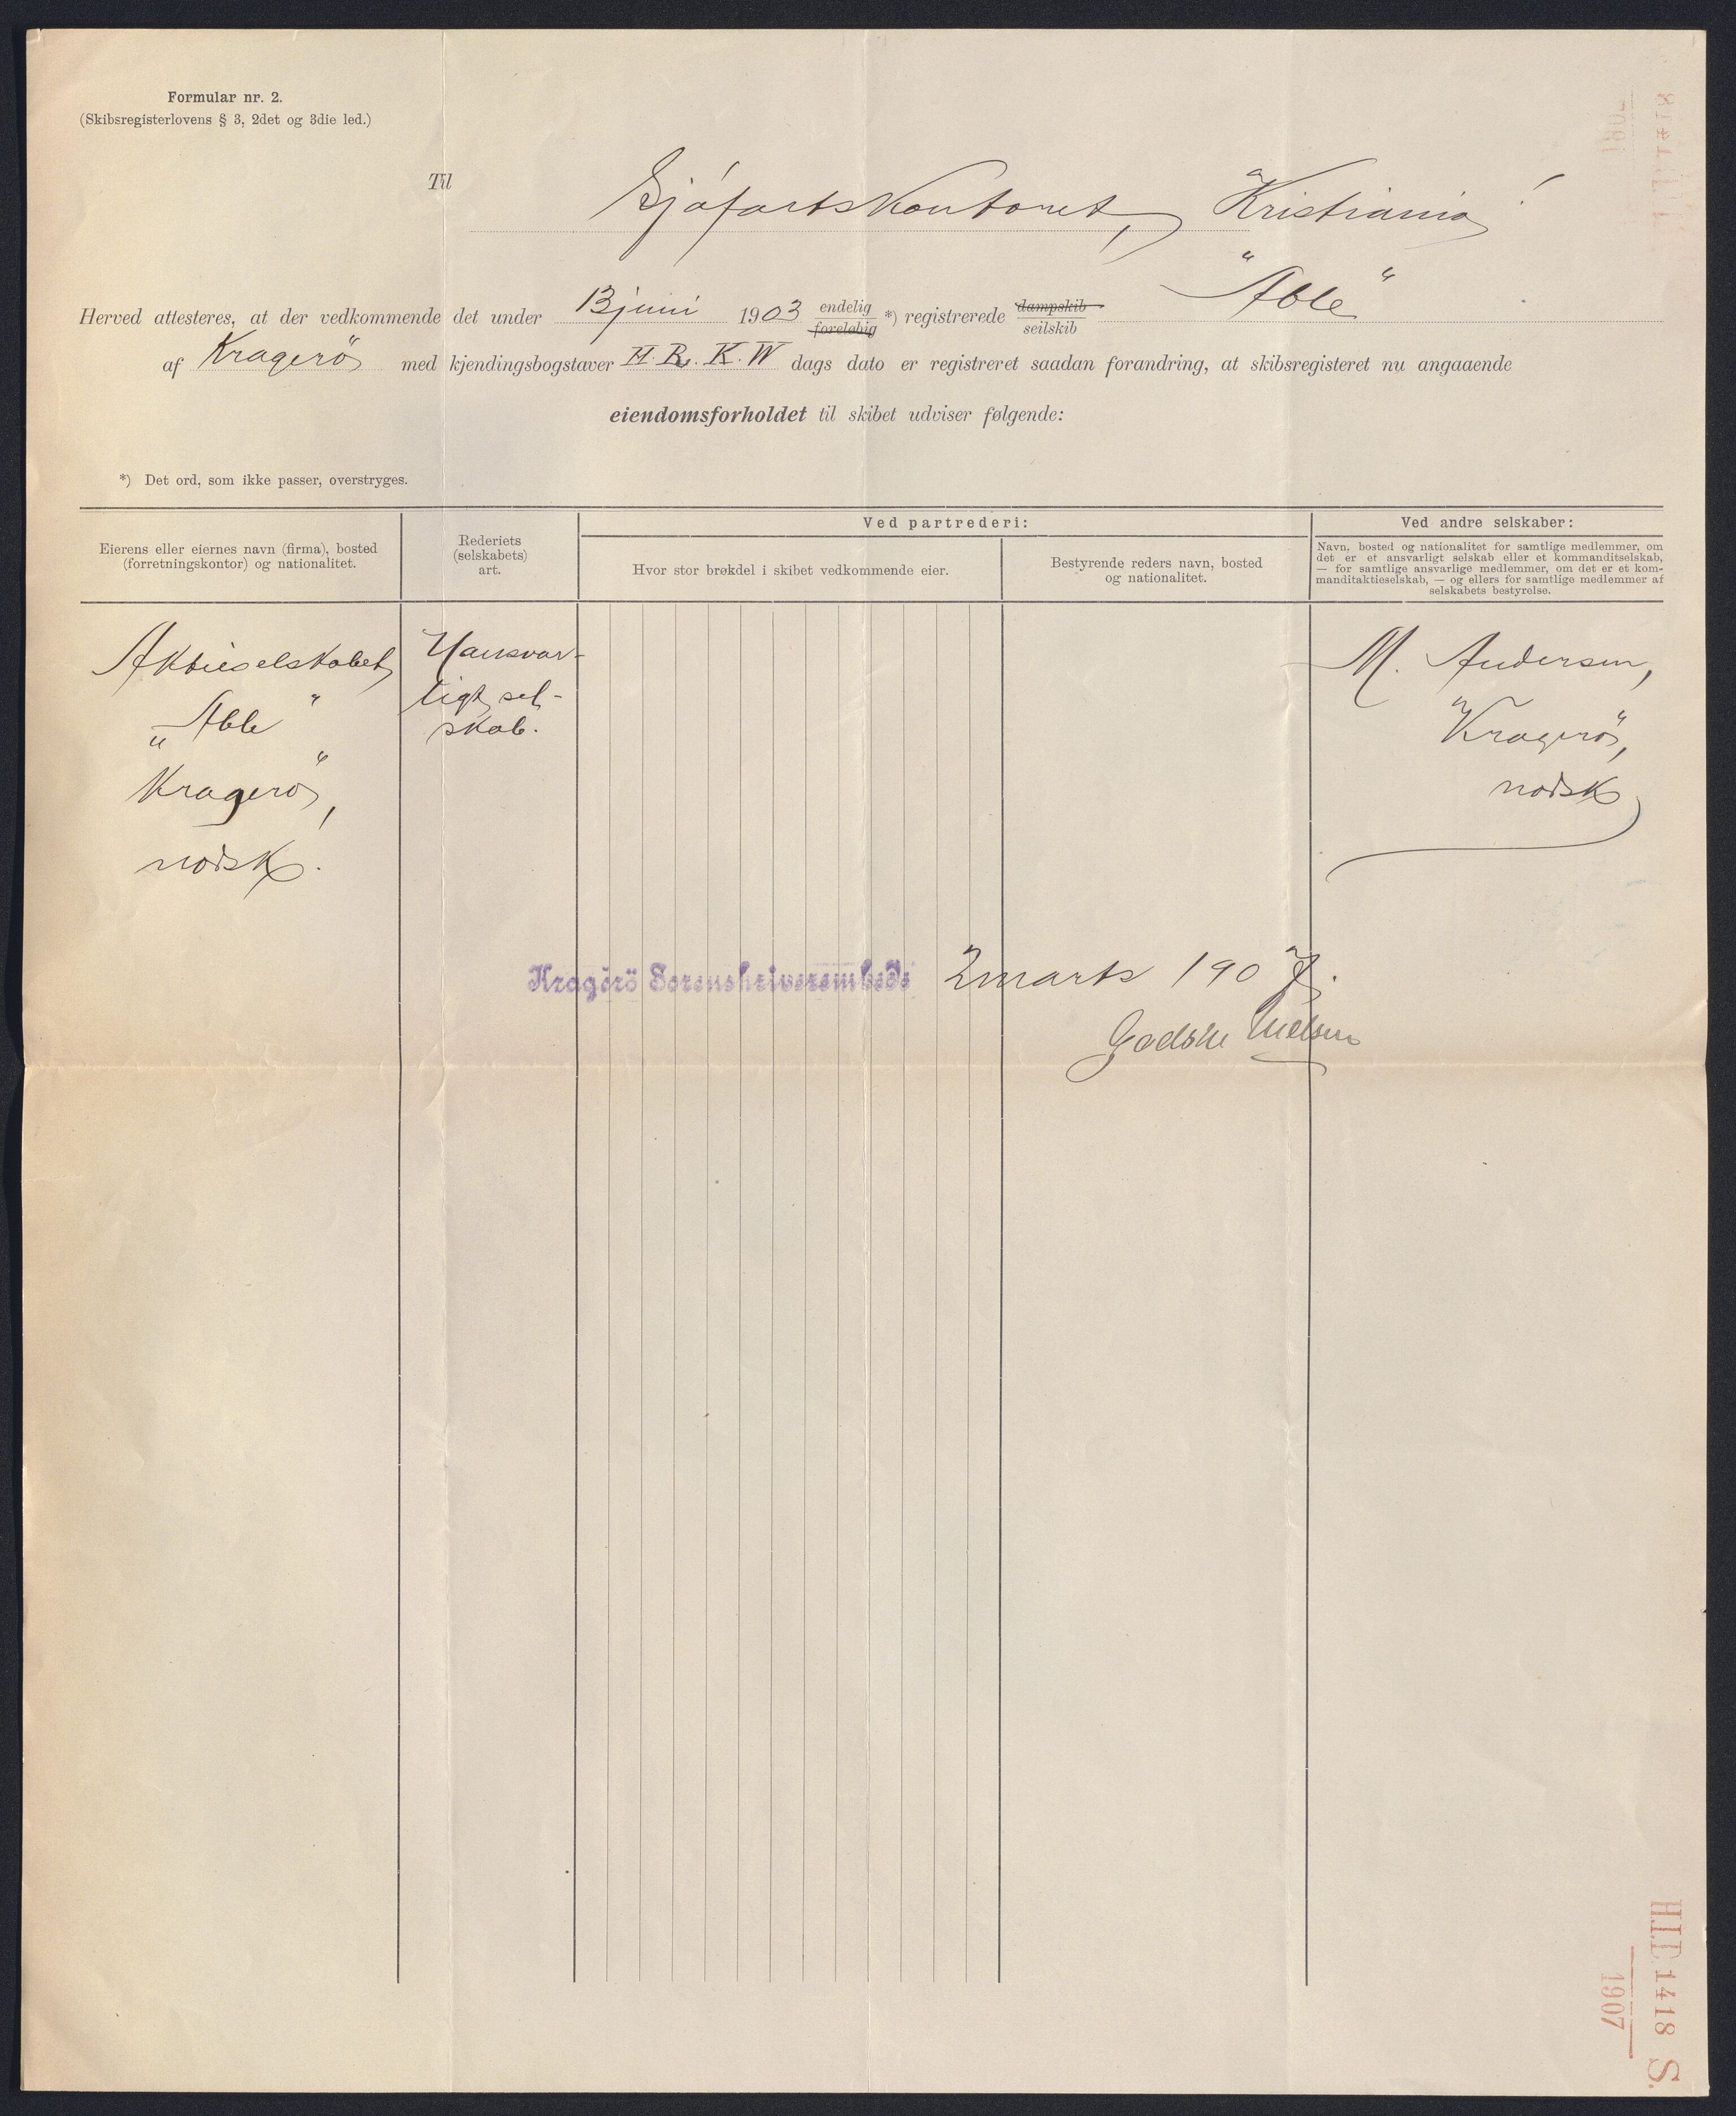 Formular nr. 2.
(Skibsregisterlovens § 3, 2det og 3die led.)
Til Sjøfartskontoret, Kristiania
Herved attesteres, at der vedkommende det under 13 juni 1903 endelig foreløbig *) registrerede dampskib seilskib "Able"
af Kragerö med kjendingsbogstaver H. R. K. W dags dato er registreret saadan forandring, at skibsregisteret nu angaaende
eiendomsforholdet til skibet udviser følgende:
*) Det ord, som ikke passer, overstryges.
Eierens eller eiernes navn (firma), bosted
(forretningskontor) og nationalitet.
Rederiets
(selskabets)
art.
Ved partrederi:
Hvor stor brøkdel i skibet vedkommende eier.
Bestyrende reders navn, bosted
og nationalitet.
Ved andre selskaber:
Navn, bosted og nationalitet for samtlige medlemmer, om
det er et ansvarligt selskab eller et kommanditselskab,
— for samtlige ansvarlige medlemmer, om det er et kom-
manditaktieselskab, — og ellers for samtlige medlemmer af
selskabets bestyrelse.
Aktieselskabet
„Able"
Kragerö,
norsk.
Uansvar-
ligt sel-
skab.
M. Andersen,
Kragerö,
norsk
Kragerö Sorenskriverembede 2 marts 1907.
Godske Nielsen
1418 S.
1907